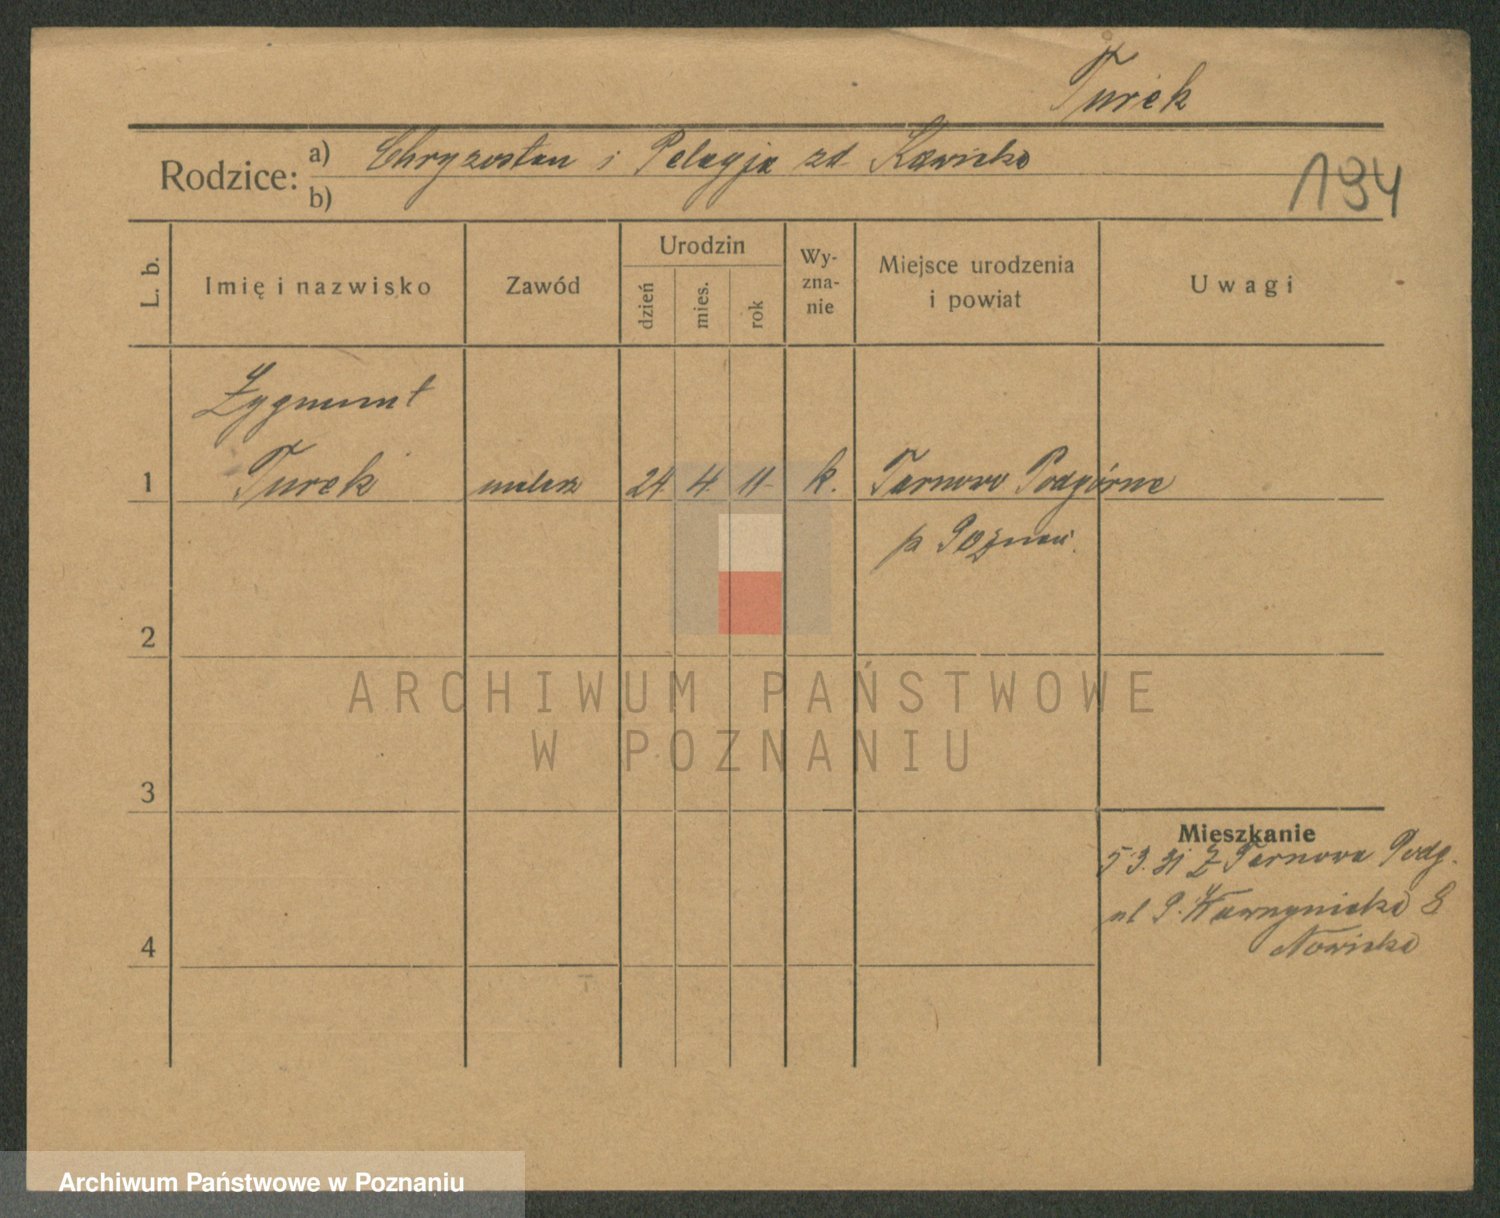 Turek
Rodzice: a) Chryzostom i Pelagja zd. Kawicka
b)
194
L. b.
Imię i nazwisko
Zawód
Urodzin
dzień
mies.
rok
Wy-
zna-
nie
Miejsce urodzenia
i powiat
Uwagi
Zygmunt
1 Turek malarz 24 4 11 k. Tarnowo Podgórne
p Poznań.
2
ARCHIWUM PAŃSTWOWE
W POZNANIU
3
Mieszkanie
5 3. 31 Z Tarnowa Podg.
ul P. Wawrzyniaka
4
Nowicka
Archiwum Państwowe w Poznaniu